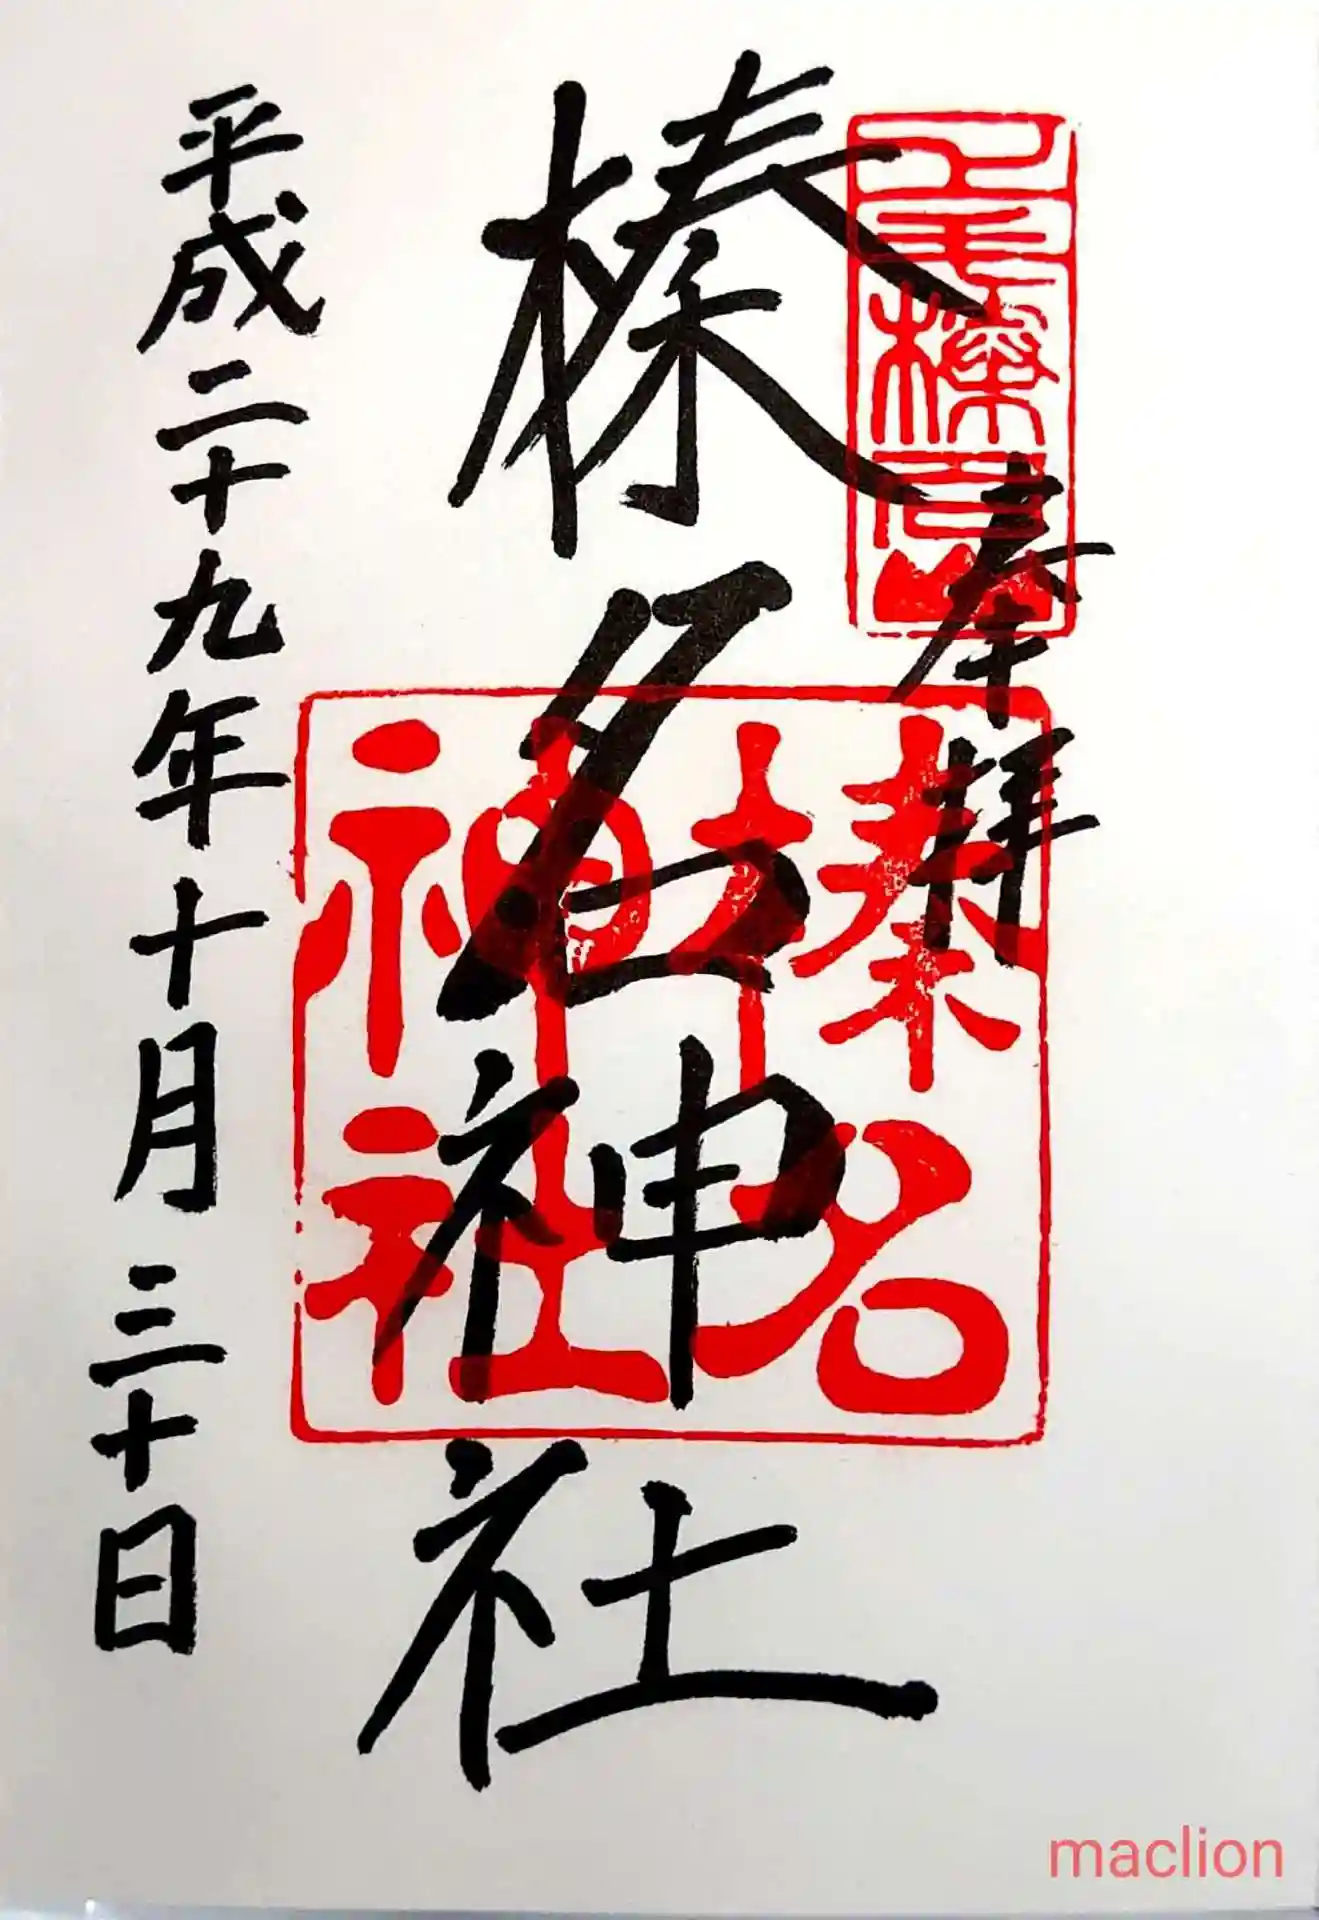 奉拝
榛名神社
平成二十九年十月三十日
上毛榛名山
榛名
神社
maclion